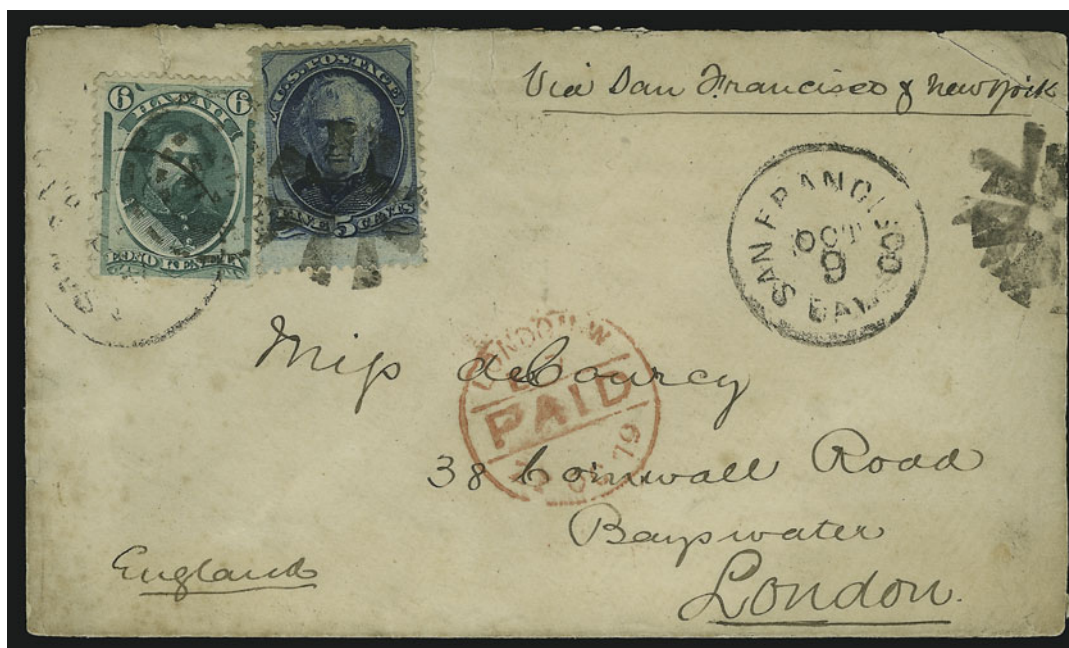 Via San Francisco & New York
6 HAWAII 6
EONO KENETA
U.S. POSTAGE
FIVE 5 CENTS
SAN FRANCISCO
OCT
9
CAL
LONDON W
PAID
OC 79
Miss deCourcy
38 Cornwall Road
Bayswater
London.
England